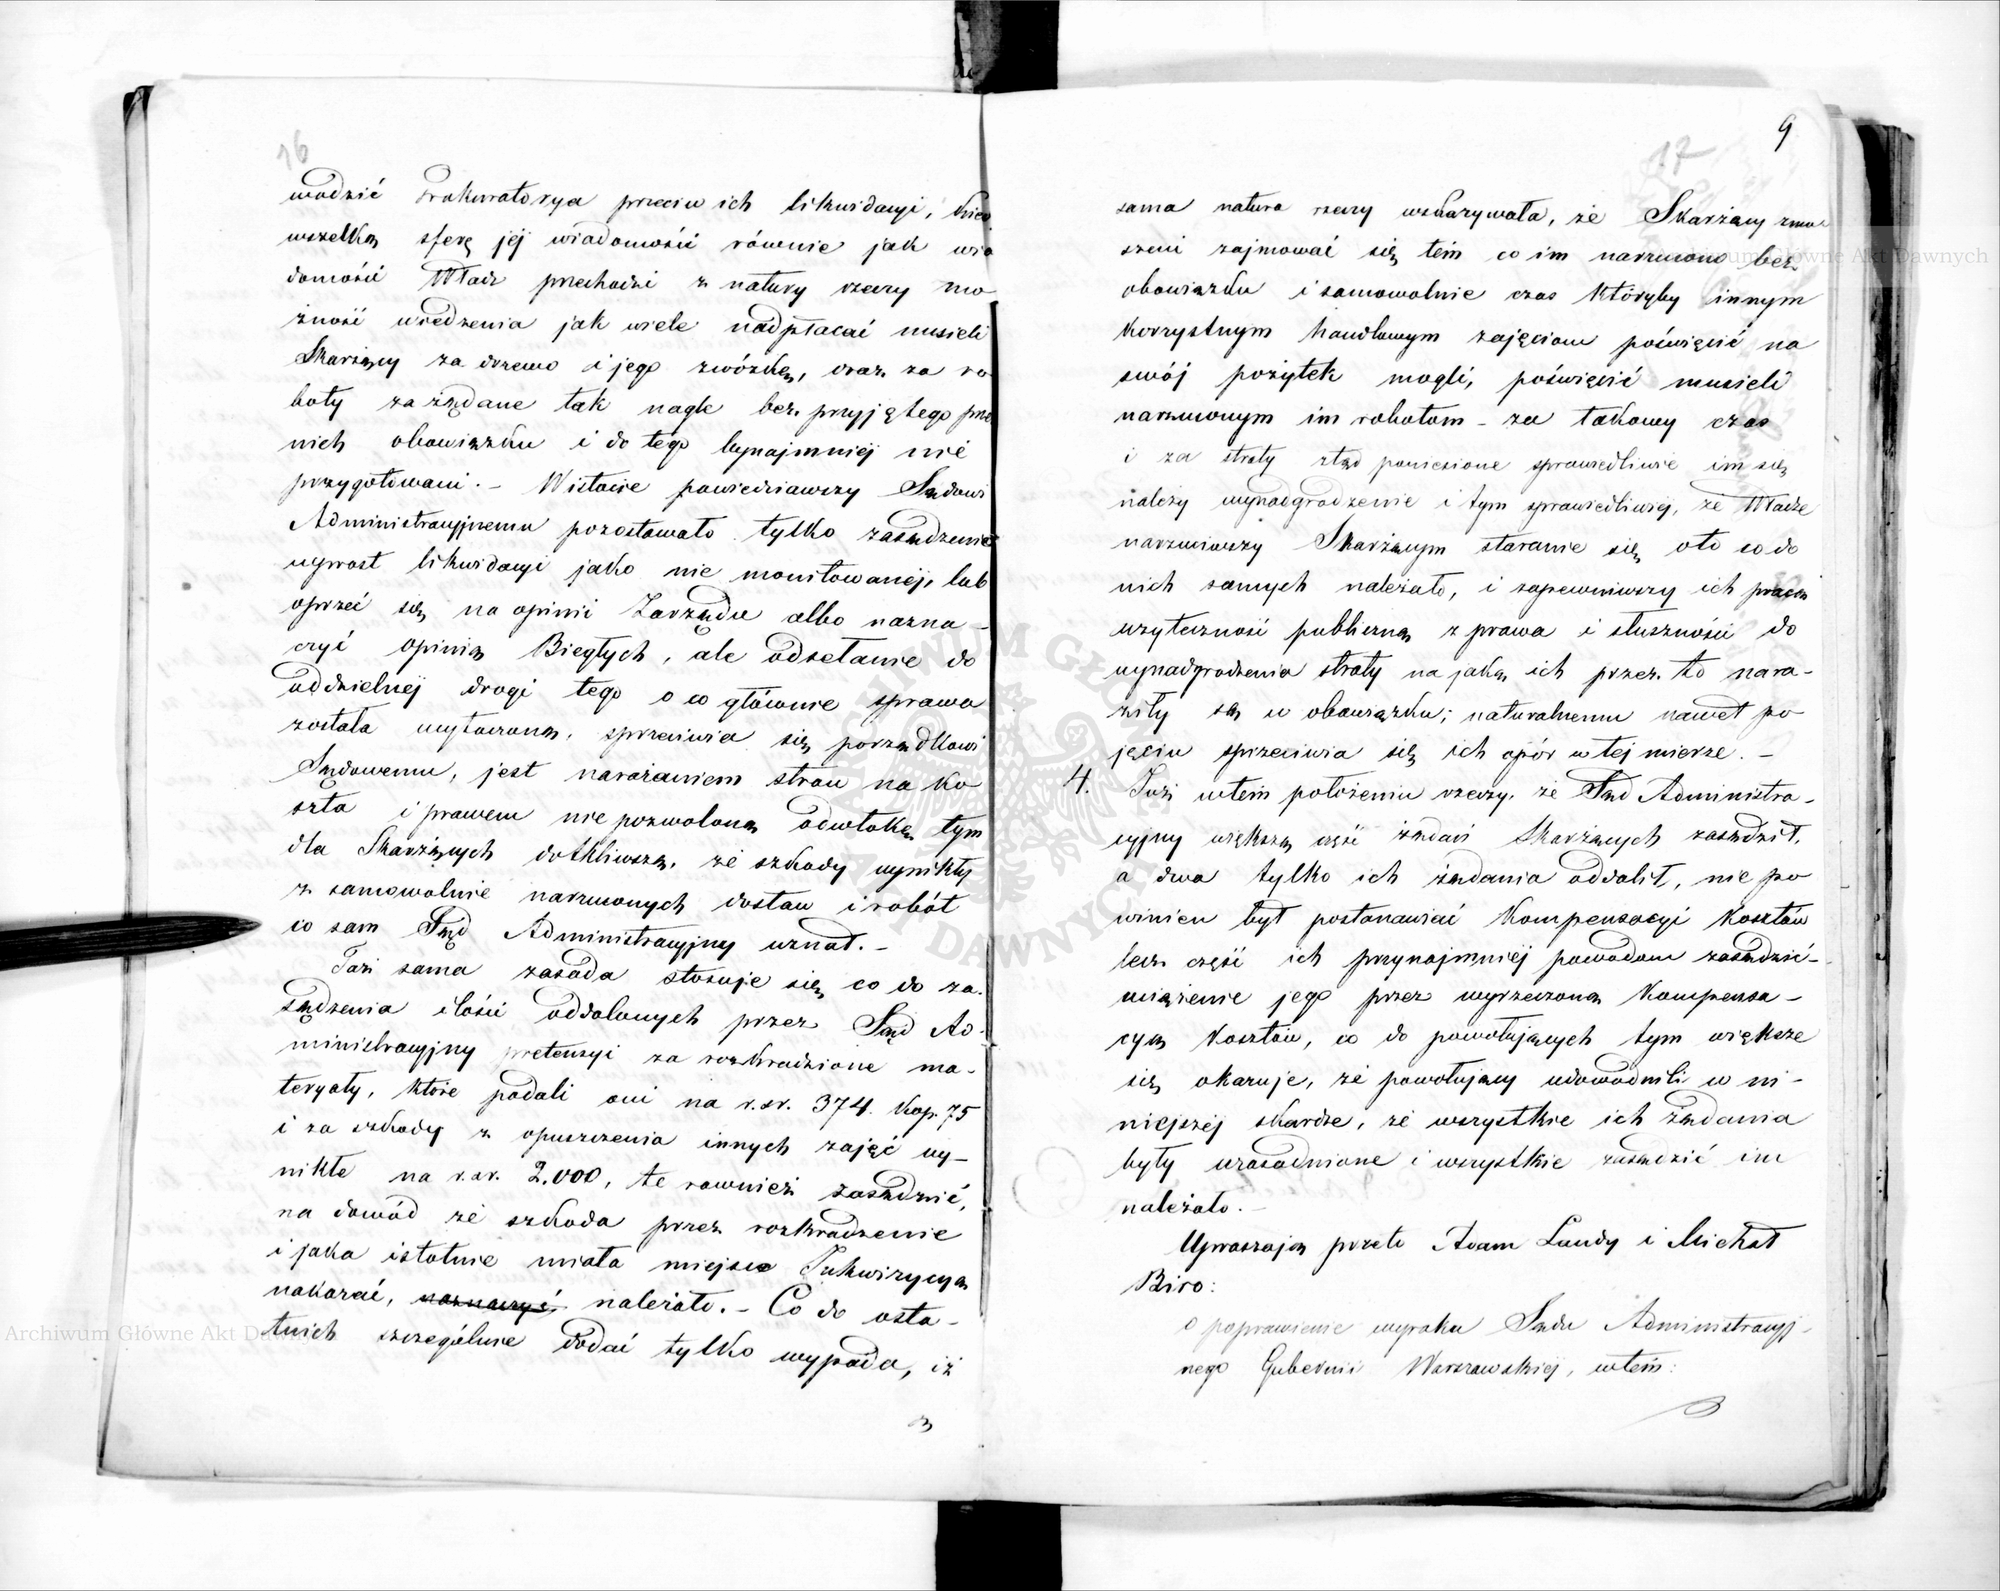 16
wodzić Prokuratorya przeciw ich likwidacyi, kiedy
wszelką sferę jej wiadomości równie jak wia
domości Władz przechodzi z natury rzeczy mo
żność wiedzenia jak wiele nadpłacać musieli
Skarżący za drzewo i jego zwózkę, oraz za ro
boty zażądane tak nagle bez przyjętego przez
nich obowiązku i do tego bynajmniej nie
przygotowani. – W istocie powiedziawszy Sądowi
Administracyjnemu pozostawało tylko zasądzenie
wprost likwidacyi jako nie monitowanéj, lub
oprzeć się na opinii Zarządu albo nazna –
czyć opinią Biegłych, ale odsełanie do
oddzielnéj drogi tego o co głównie sprawa
została wytoczoną, sprzeciwia się porządkowi
Sądowemu, jest narażaniem stron na ko
szta i prawem niepozwoloną odwłokę, tym
dla Skarżących dotkliwszą, że szkody wynikły
z samowolnie narzuconych dostaw i robót
co sam Sąd Administracyjny uznał. –
Taż sama zasada stosuje się co do za.
sądzenia ilości oddalonych przez Sąd Ad.
ministracyjny pretensyi za rozkradzione ma –
teryały, które podali oni na r.sr. 374. kop. 75
i za szkody z opuszczenia innych zajęć wy –
nikłe na r.sr. 2.000, te rownież zasądzić,
na dowód że szkoda przez rozkradzenie
i jaka istotnie miała miejsce Inkwizycyą
nakazać, naznaczyć należało. – Co do osta –
tnich szczególnie dodać tylko wypada, iż
17
9
sama natura rzeczy wskazywała, że Skarżący zmu
szeni zajmować się tém co im narzucono bez
obowiązku i samowolnie czas któryby innym
korzystnym handlowym zajęciom poświęcić na
swój pożytek mogli, poświęcić musieli
narzuconym im robotom – za takowy czas
i za straty ztąd poniesione sprawiedliwie im się
należy wynadgrodzenie i tym sprawiedliwiéj, że Władze
narzuciwszy Skarżącym staranie się oto co do
nich samych należało, i zapewniwszy ich pracom
użyteczność publiczną z prawa i słuszności do
wynadgrodzenia straty na jaką ich przez to nara –
ziły są w obowiązku; naturalnemu nawet po
jęciu sprzeciwia się ich opór w tej mierze. –
4. Już w tém położeniu rzeczy, że Sąd Administra –
cyjny większą część żądań Skarżących zasądził,
a dwa tylko ich żądania oddalił, nie po
winien był postanawiać kompensacyi kosztów
lecz część ich przynajmniéj powodom zasądzić –
uciążenie jego przez wyrzeczoną kompensa –
cyą kosztów, co do powołujących tym większe
się okazuje, że powołujący udowodnili w ni –
niejszéj skardze, że wszystkie ich żądania
były uzasadnione i wszystkie zasądzić im
należało. –
Upraszają przeto Adam Landy i Michał
Biro:
o poprawienie wyroku Sądu Administracyj –
nego Gubernii Warszawskiéj, w tém:
Archiwum Główne Akt Dawnych
ARCHIWUM GŁÓWNE AKT DAWNYCH
Archiwum Główne Akt Dawnych